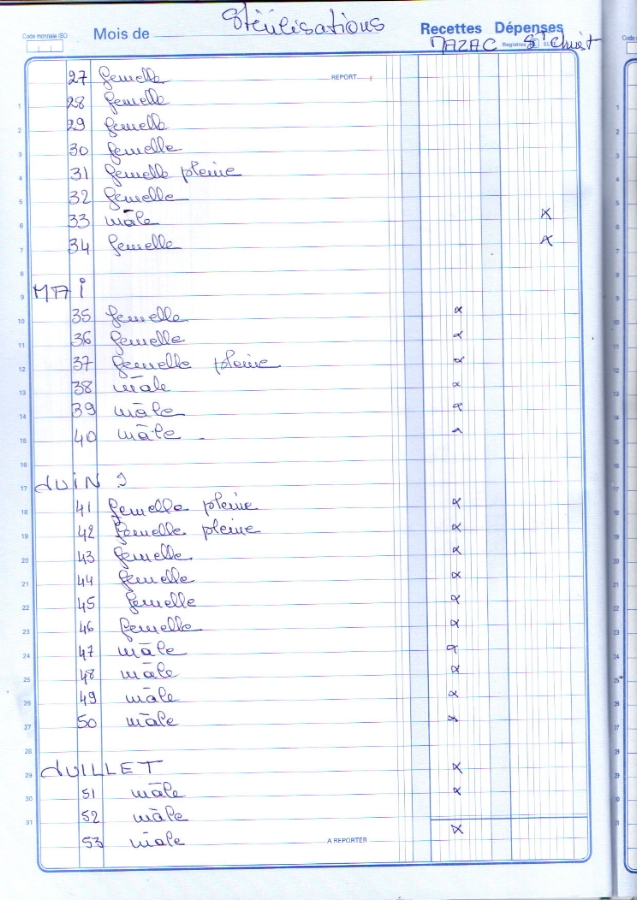 Code monnaie ISO
Mois de Stérilisations Recettes Dépenses
MAZAC St Christ
27 femelle REPORT
28 femelle
29 femelle
30 femelle
31 femelle pleine
32 femelle
33 mâle x
34 femelle x
MAI
35 femelle x
36 femelle x
37 femelle pleine x
38 mâle x
39 mâle x
40 mâle x
JUIN
41 femelle pleine x
42 femelle pleine x
43 femelle x
44 femelle x
45 femelle x
46 femelle x
47 mâle x
48 mâle x
49 mâle x
50 mâle x
JUILLET x
51 mâle x
52 mâle
53 mâle A REPORTER x